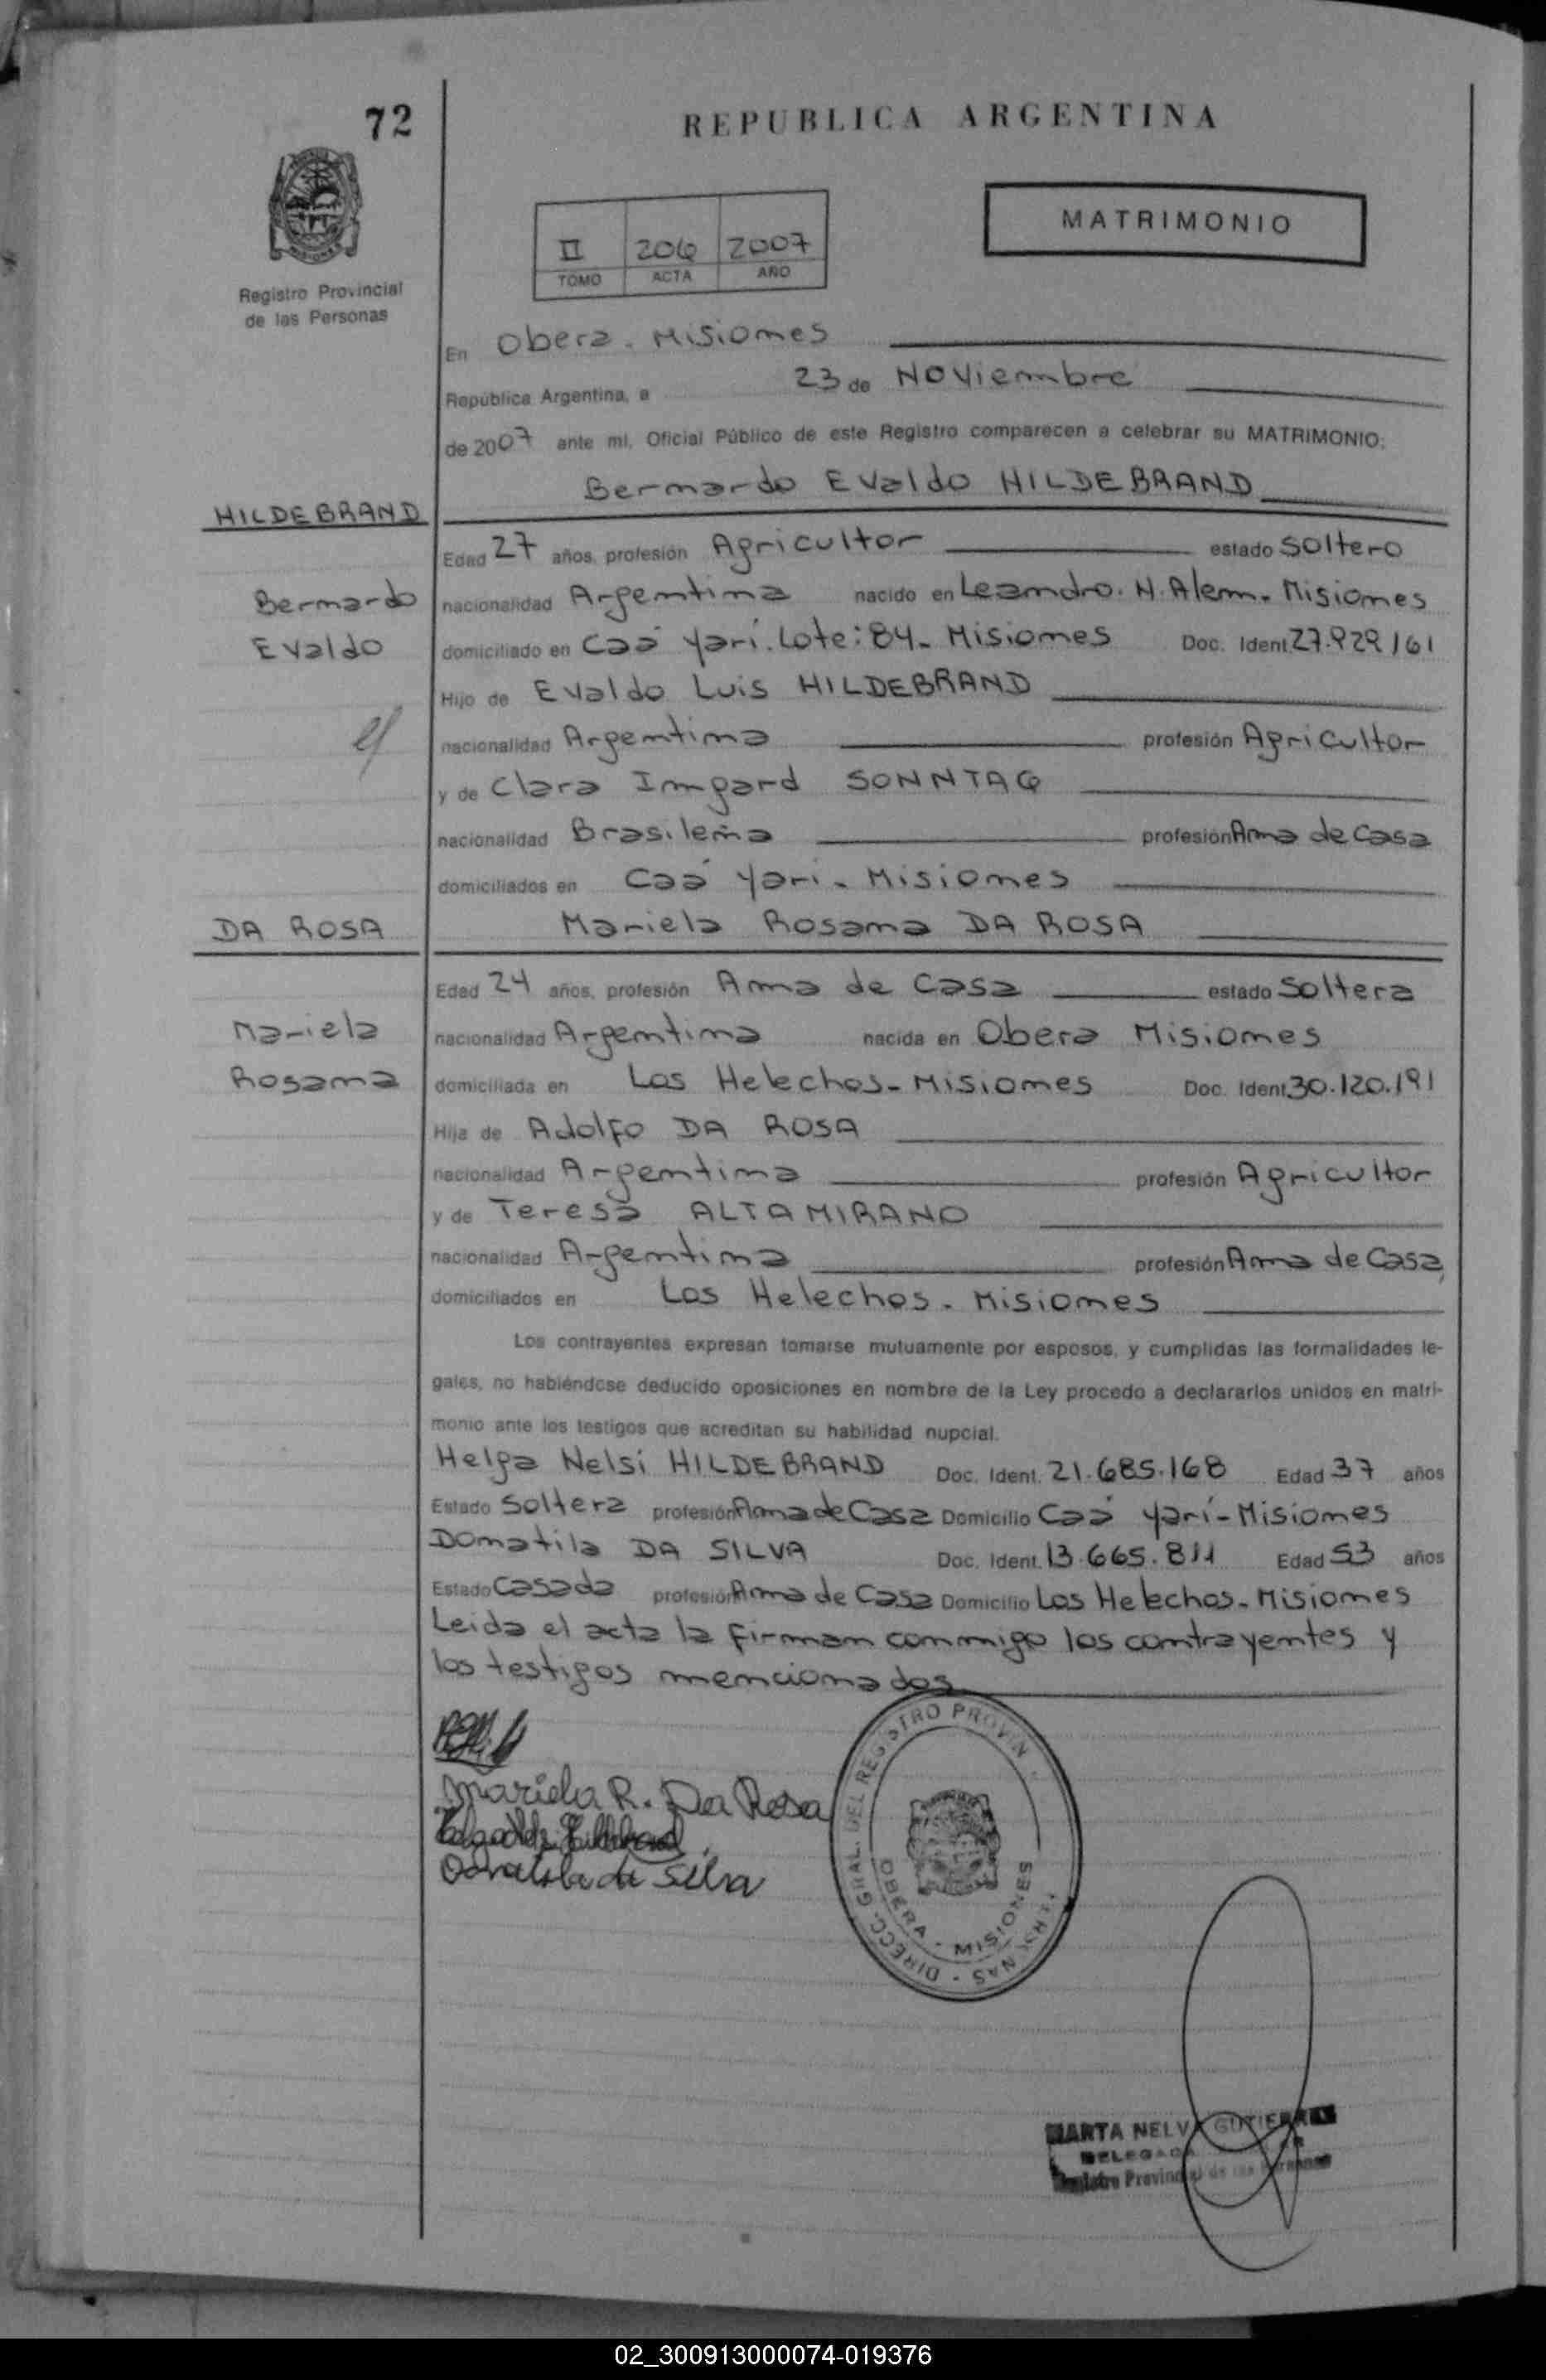 72
REPUBLICA ARGENTINA
MATRIMONIO
II 206 2007
TOMO ACTA AÑO
Registro Provincial
de las Personas
En Obera. Misiones
República Argentina, a 23 de Noviembre
de 2007 ante mi, Oficial Público de este Registro comparecen a celebrar su MATRIMONIO:
Bernardo Evaldo HILDEBRAND
HILDEBRAND
Edad 27 años, profesión Agricultor estado Soltero
Bernardo
nacionalidad Argentina nacido en Leandro. N. Alem. Misiones
Evaldo
domiciliado en Caá Yarí. Lote: 84. Misiones Doc. Ident. 27.929.161
Hijo de Evaldo Luis HILDEBRAND
nacionalidad Argentina profesión Agricultor
y de Clara Imgard SONNTAG
nacionalidad Brasileña profesión Ama de Casa
domiciliados en Caá Yari. Misiones
DA ROSA
Mariela Rosana DA ROSA
Edad 24 años, profesión Ama de Casa estado Soltera
Mariela
nacionalidad Argentina nacida en Obera Misiones
Rosana
domiciliada en Los Helechos. Misiones Doc. Ident. 30.120.191
Hija de Adolfo DA ROSA
nacionalidad Argentina profesión Agricultor
y de Teresa ALTAMIRANO
nacionalidad Argentina profesión Ama de Casa
domiciliados en Los Helechos. Misiones
Los contrayentes expresan tomarse mutuamente por esposos, y cumplidas las formalidades le-
gales, no habiéndose deducido oposiciones en nombre de la Ley procedo a declararlos unidos en matri-
monio ante los testigos que acreditan su habilidad nupcial.
Helga Nelsi HILDEBRAND Doc. Ident. 21.685.168 Edad 37 años
Estado Soltera profesión Ama de Casa Domicilio Caá Yarí - Misiones
Domatila DA SILVA Doc. Ident. 13.665.811 Edad 53 años
Estado Casada profesión Ama de Casa Domicilio Los Helechos. Misiones
Leida el acta la firman conmigo los contrayentes y
los testigos mencionados
Mariela R. Da Rosa
da Silva
DIRECC. GRAL. DEL REGISTRO PROVIN
OBERA - MISIONES
MARTA NELV GUTIERREZ
DELEGADA
Registro Provincial de las Personas
02_300913000074-019376